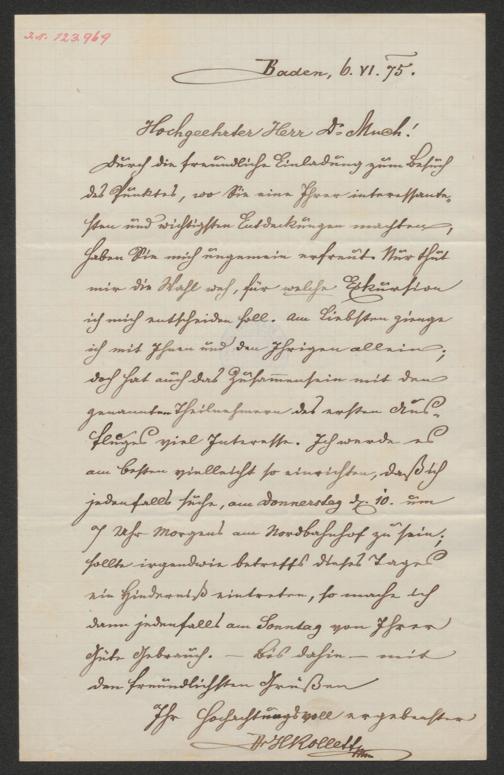 Z.N. 123.969
Baden, 6. VI. 75.
Hochgeehrter Herr Dr Much!
Durch die freundliche Einladung zum Besuch
des Punktes, wo Sie eine Ihrer interessante-
sten und wichtigsten Entdeckungen machten,
haben Sie mich ungemein erfreut. Nur thut
mir die Wahl weh, für welche Exkursion
ich mich entscheiden soll. Am Liebsten gienge
ich mit Ihnen und den Ihrigen allein;
doch hat auch das Zusammensein mit den
genannten Theilnehmern des ersten Aus-
fluges viel Interesse. Ich werde es
am besten vielleicht so einrichten, daß ich
jedenfalls suche, am Donnerstag d. 10. um
7 Uhr Morgens am Nordbahnhof zu sein;
sollte irgendwie betreffs dieses Tages
ein Hinderniß eintreten, so mache ich
dann jedenfalls am Sonntag von Ihrer
Güte Gebrauch. — Bis dahin — mit
den freundlichsten Grüßen
Ihr hochachtungsvoll ergebenster
Dr H Rollett